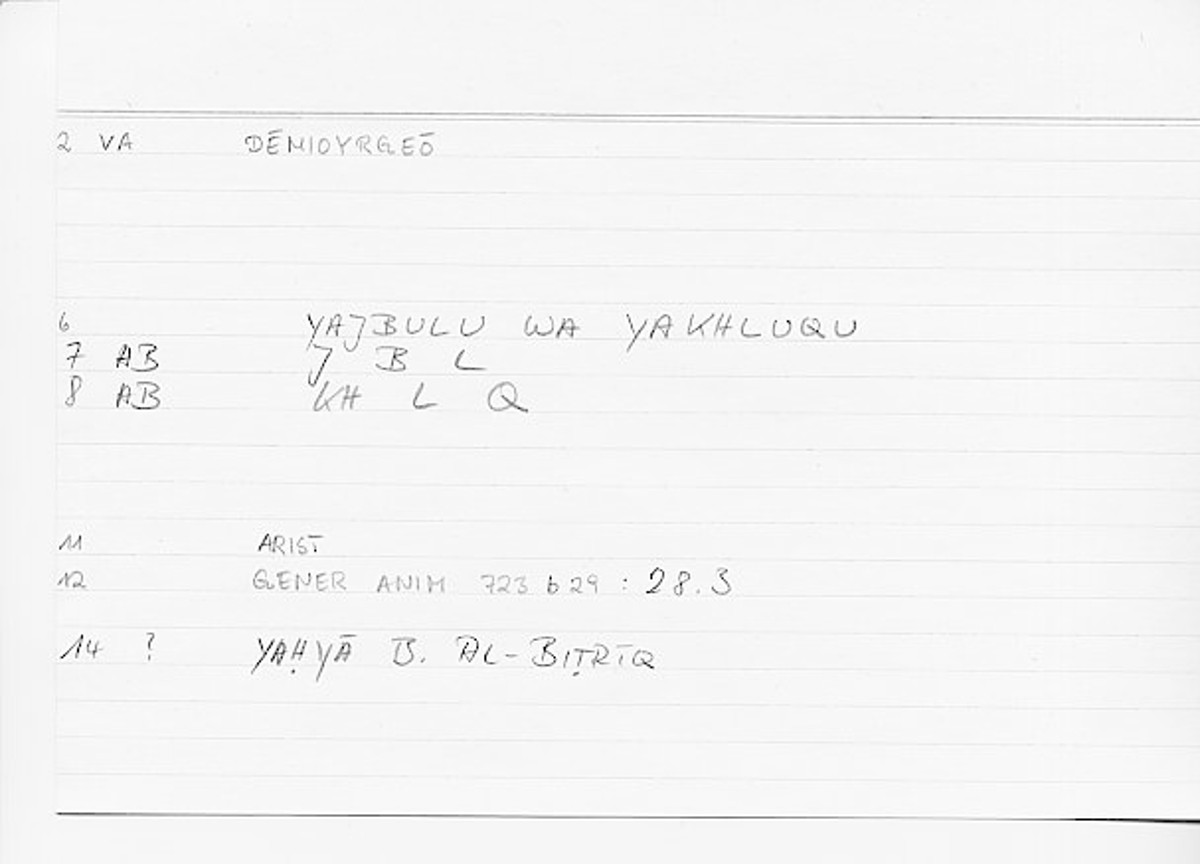 2 VA DĒMIOYRGEŌ
6 YAJBULU WA YAKHLUQU
7 AB J B L
8 AB KH L Q
11 ARIST
12 GENER ANIM 723 b 29 : 28.3
14 ? YAḤYĀ B. AL-BIṬRĪQ